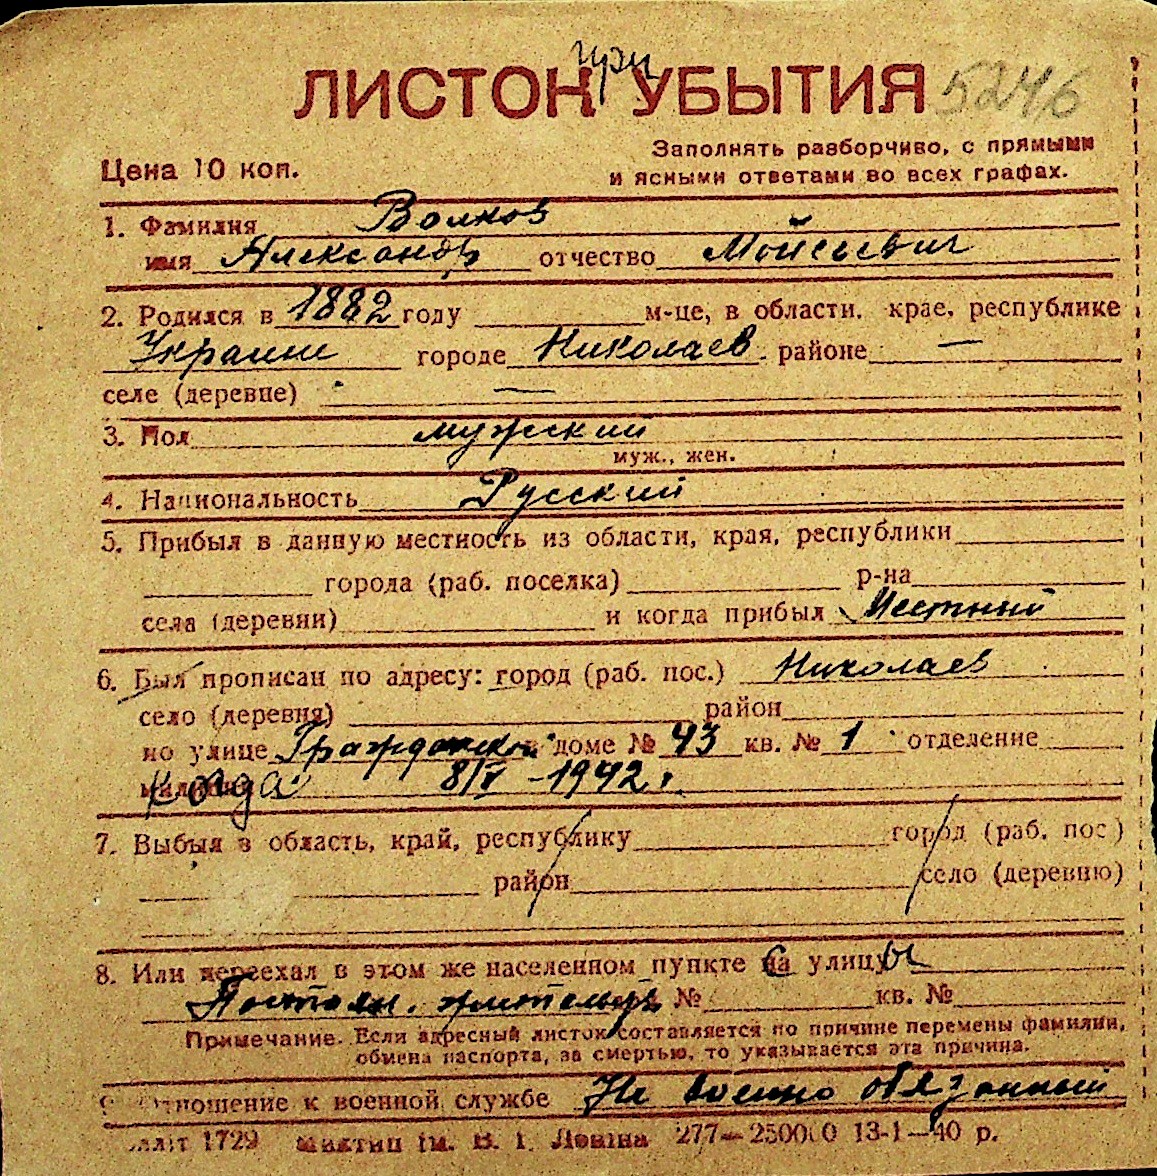 при
ЛИСТОК УБЫТИЯ 5246
Цена 10 коп.
Заполнять разборчиво, с прямыми
и ясными ответами во всех графах.
1. Фамилия Волков
имя Александр отчество Мойсеевич
2. Родился в 1882 году м-це, в области, крае, республике
Украине городе Николаев районе —
селе (деревне) —
3. Пол мужский
муж., жен.
4. Национальность Русский
5. Прибыл в данную местность из области, края, республики
города (раб. поселка) р-на
села (деревни) и когда прибыл Местный
6. Был прописан по адресу: город (раб. пос.) Николаев
село (деревня) район
по улице Гражданской доме № 43 кв. № 1 отделение
когда 8/V - 1942 г.
7. Выбыл в область, край, республику город (раб. пос)
район село (деревню)
8. Или переехал в этом же населенном пункте с улицы
Постоян. житель № кв. №
Примечание. Если адресный листок составляется по причине перемены фамилии,
обмена паспорта, за смертью, то указывается эта причина.
9 Отношение к военной службе Не военно обязанный
1729 Миктип ім. В. І. Леніна 277—25000 13-1—40 р.